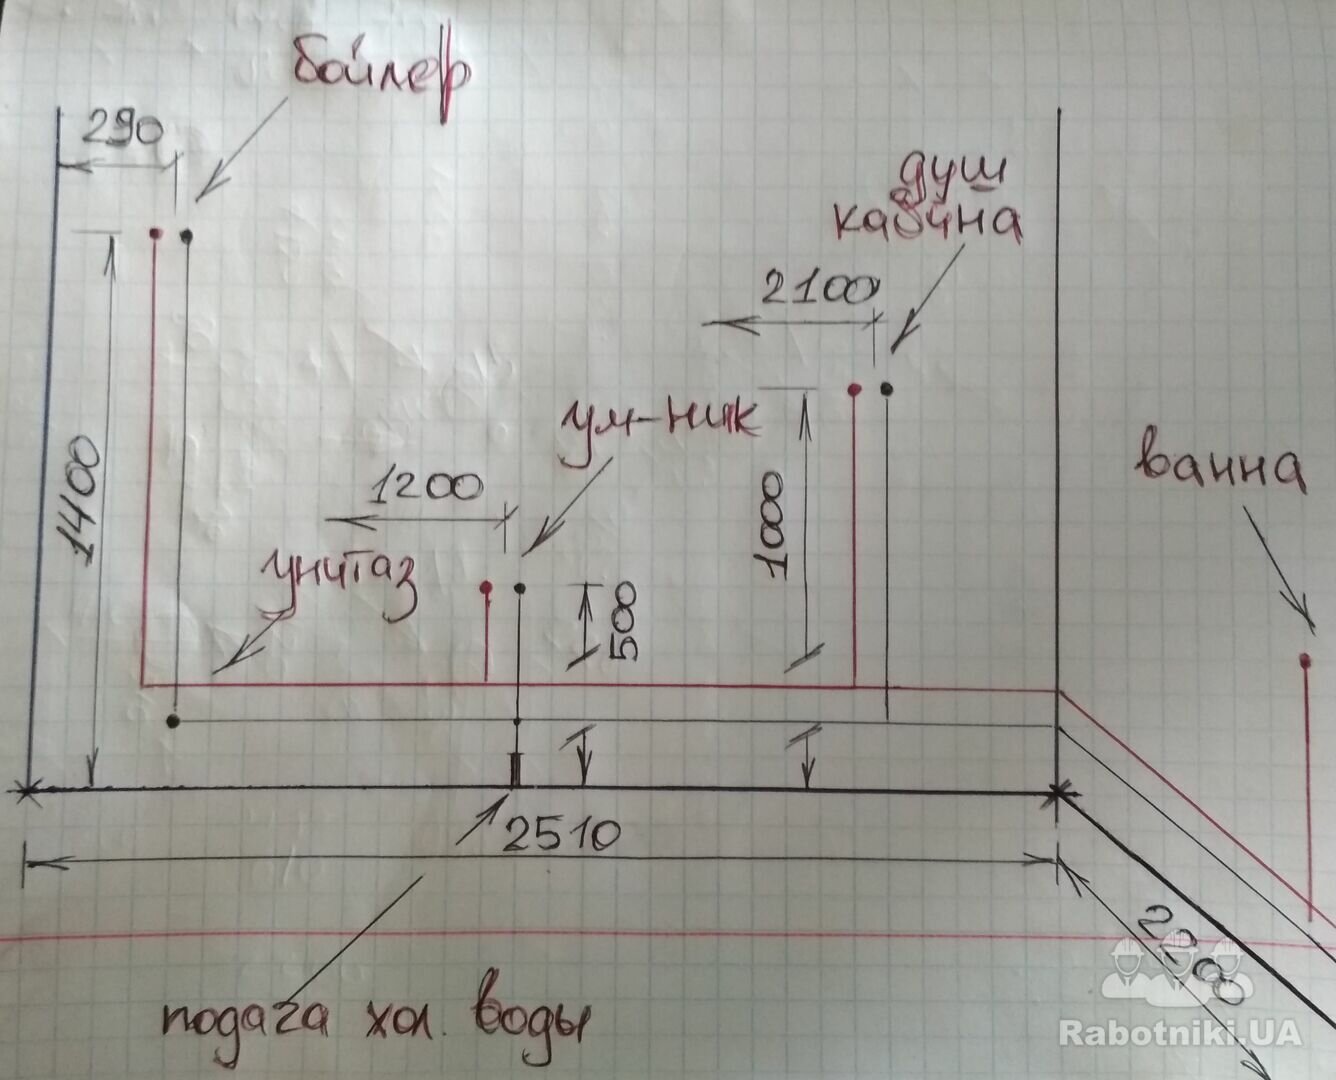 бойлер
290
душ
кабина
2100
ум-ник
ванна
1200
1400
1000
унитаз
500
2510
2200
подача хол. воды
Rabotniki.UA